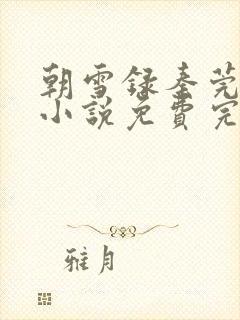 朝雪录秦莞
小说免费完
雅月